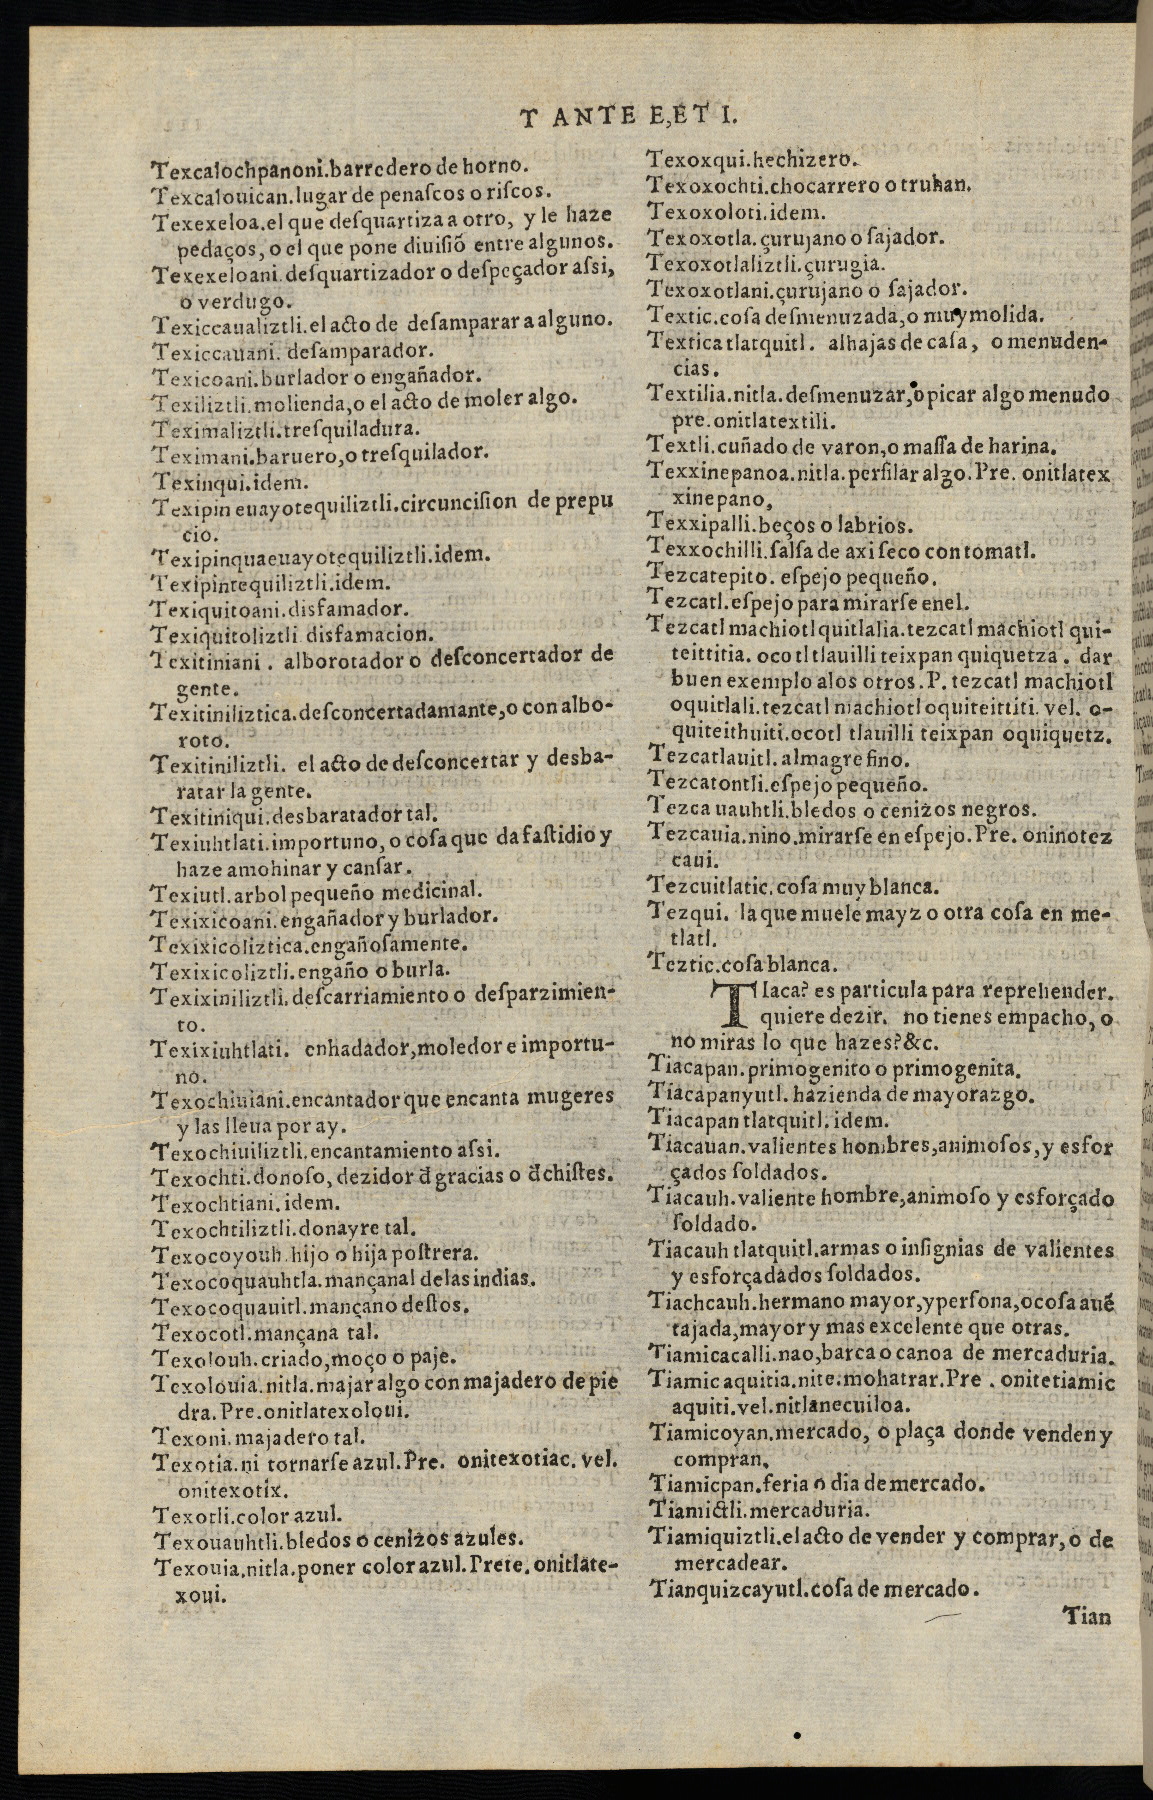 T ANTE E, ET I.
Texcalochpanoni.barredero de horno.
Texcalouican.lugar de penaſcos o riſcos.
Texexeloa.el que deſquartiza a otro, y le haze
pedaços, o el que pone diuiſiõ entre algunos.
Texexeloani.deſquartizador o deſpeçador aſsi,
o verdugo.
Texiccaualiztli.el acto de deſamparar a alguno.
Texiccauani. deſamparador.
Texicoani.burlador o engañador.
Texiliztli.molienda,o el acto de moler algo.
Teximaliztli.treſquiladura.
Teximani.baruero,o treſquilador.
Texinqui.idem.
Texipin euayotequiliztli.circunciſion de prepu
cio.
Texipinquaeuayotequiliztli.idem.
Texipintequiliztli.idem.
Texiquitoani.disfamador.
Texiquitoliztli disfamacion.
Texitiniani. alborotador o deſconcertador de
gente.
Texitiniliztica.deſconcertadamante,o con albo-
roto.
Texitiniliztli. el acto de deſconcertar y desba-
ratar la gente.
Texitiniqui.desbaratador tal.
Texiuhtlati.importuno, o coſa que da faſtidio y
haze amohinar y canſar.
Texiutl.arbol pequeño medicinal.
Texixicoani.engañador y burlador.
Texixicoliztica.engañoſamente.
Texixicoliztli.engaño o burla.
Texixiniliztli.deſcarriamiento o deſparzimien-
to.
Texixiuhtlati. enhadador,moledor e importu-
no.
Texochiuiani.encantador que encanta mugeres
y las lleua por ay.
Texochiuiliztli.encantamiento aſsi.
Texochti.donoſo, dezidor đ gracias o đ chiſtes.
Texochtiani.idem.
Texochtiliztli.donayre tal.
Texocoyouh.hijo o hija poſtrera.
Texocoquauhtla.mançanal delas indias.
Texocoquauitl.mançano deſtos.
Texocotl.mançana tal.
Texolouh.criado,moço o paje.
Texolouia.nitla.majar algo con majadero de pie
dra.Pre.onitlatexoloui.
Texoni.majadero tal.
Texotia.ni tornarſe azul.Pre. onitexotiac. vel.
onitexotix.
Texotli.color azul.
Texouauhtli.bledos o cenizos azules.
Texouia.nitla.poner color azul.Prete.onitlate-
xoui.
Texoxqui.hechizero.
Texoxochti.chocarrero o truhan.
Texoxoloti.idem.
Texoxotla.çurujano o ſajador.
Texoxotlaliztli.çurugia.
Texoxotlani.çurujano o ſajador.
Textic.coſa deſmenuzada,o muy molida.
Textica tlatquitl. alhajas de caſa, o menuden-
cias.
Textilia.nitla.deſmenuzar,o picar algo menudo
pre.onitlatextili.
Textli.cuñado de varon,o maſſa de harina.
Texxinepanoa.nitla.perfilar algo.Pre. onitlatex
xinepano,
Texxipalli.beços o labrios.
Texxochilli.ſalſa de axi ſeco con tomatl.
Tezcatepito. eſpejo pequeño.
Tezcatl.eſpejo para mirarſe enel.
Tezcatl machiotl quitlalia.tezcatl machiotl qui-
teittitia. ocotl tlauilli teixpan quiquetza. dar
buen exemplo alos otros.P. tezcatl machiotl
oquitlali.tezcatl machiotl oquiteittiti. vel. o-
quiteithuiti.ocotl tlauilli teixpan oquiquetz.
Tezcatlauitl.almagre fino.
Tezcatontli.eſpejo pequeño.
Tezca uauhtli.bledos o cenizos negros.
Tezcauia.nino.mirarſe en eſpejo.Pre. oninotez
caui.
Tezcuitlatic.coſa muy blanca.
Tezqui. la que muele mayz o otra coſa en me-
tlatl.
Teztic.coſa blanca.
TIaca? es particula para reprehender.
quiere dezir. no tienes empacho, o
no miras lo que hazes?&c.
Tiacapan.primogenito o primogenita.
Tiacapanyutl.hazienda de mayorazgo.
Tiacapan tlatquitl.idem.
Tiacauan.valientes hombres,animoſos,y esfor
çados ſoldados.
Tiacauh.valiente hombre,animoſo y esforçado
ſoldado.
Tiacauh tlatquitl.armas o inſignias de valientes
y esforçadados ſoldados.
Tiachcauh.hermano mayor,yperſona,o coſa auẽ
tajada,mayor y mas excelente que otras.
Tiamicacalli.nao,barca o canoa de mercaduria.
Tiamic aquitia.nite.mohatrar.Pre. onitetiamic
aquiti.vel.nitlanecuiloa.
Tiamicoyan.mercado, o plaça donde venden y
compran.
Tiamicpan.feria o dia de mercado.
Tiamictli.mercaduria.
Tiamiquiztli.el acto de vender y comprar,o de
mercadear.
Tianquizcayutl.coſa de mercado.
Tian